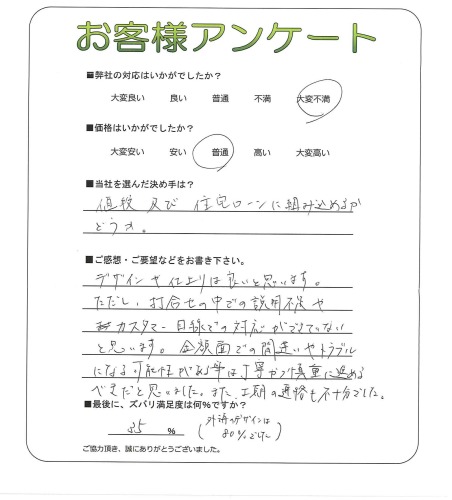 お客様アンケート
■弊社の対応はいかがでしたか?
大変良い 良い 普通 不満 大変不満
■価格はいかがでしたか?
大変安い 安い 普通 高い 大変高い
■当社を選んだ決め手は?
値段 及び 住宅ローンに組み込めるか
どうか。
■ご感想・ご要望などをお書き下さい。
デザインや仕上りは良いと思います。
ただし、打合せの中での説明不足や
カスタマー目線での対応ができていない
と思います。金額面での間違いやトラブル
になる可能性がある事は丁寧かつ慎重に進める
べきだと思いました。また、工期の連絡も不十分でした。
■最後に、ズバリ満足度は何%ですか?
35 % (外溝のデザインは
80%でした)
ご協力頂き、誠にありがとうございました。